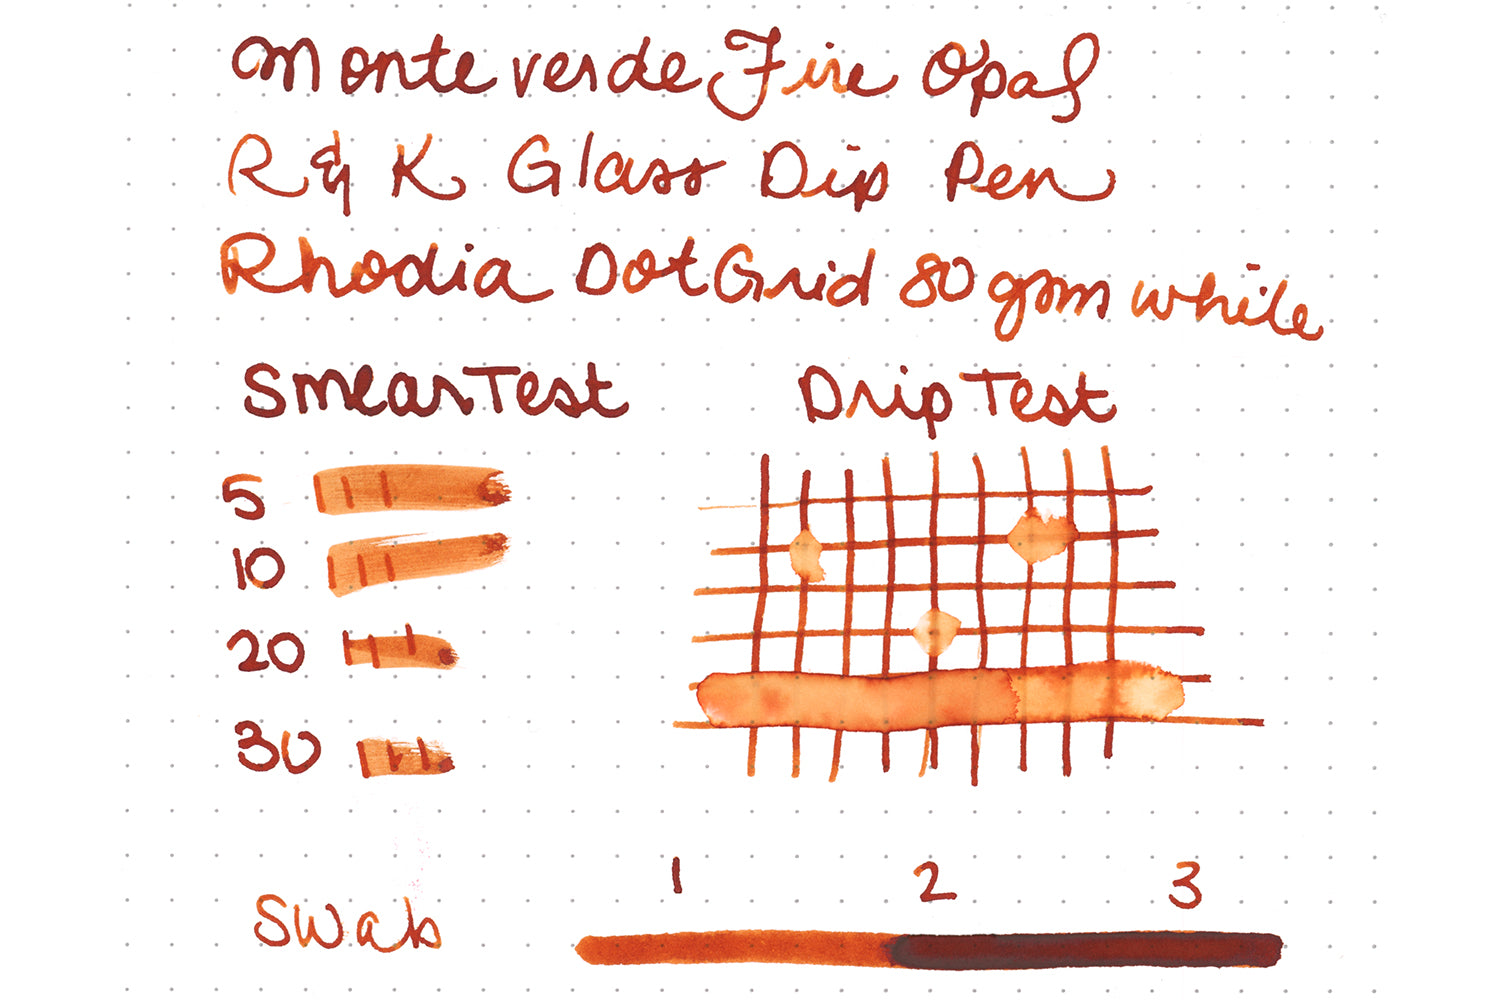 Monteverde Fire Opal
R & K Glass Dip Pen
Rhodia Dot Grid 80 gsm white
Smear Test
Drip Test
5
10
20
30
1 2 3
Swab